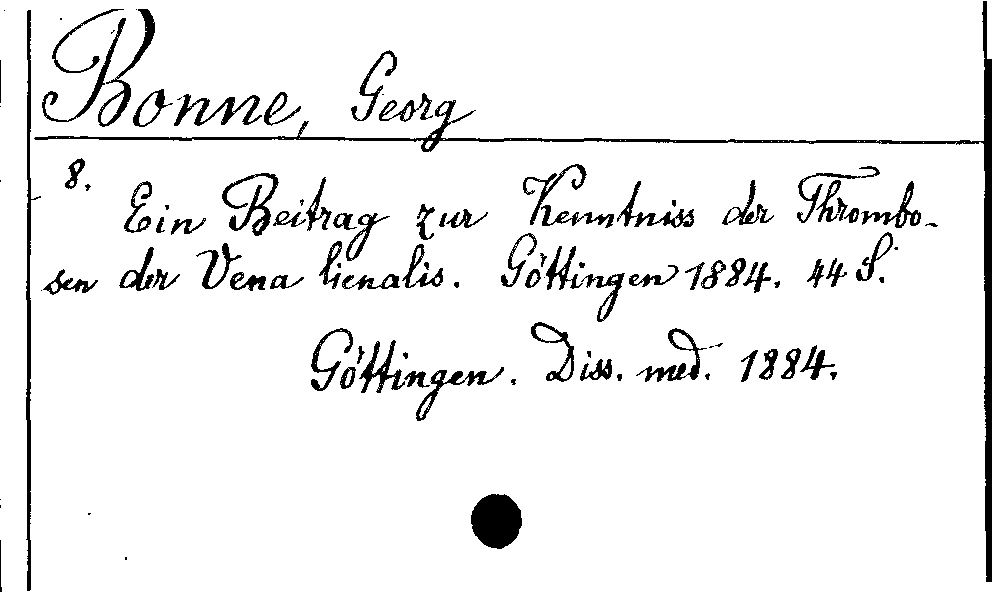 Bonne, Georg
8.
Ein Beitrag zur Kenntniss der Thrombo-
sen der Vena lienalis. Göttingen 1884. 44 S.
Göttingen. Diss. med. 1884.